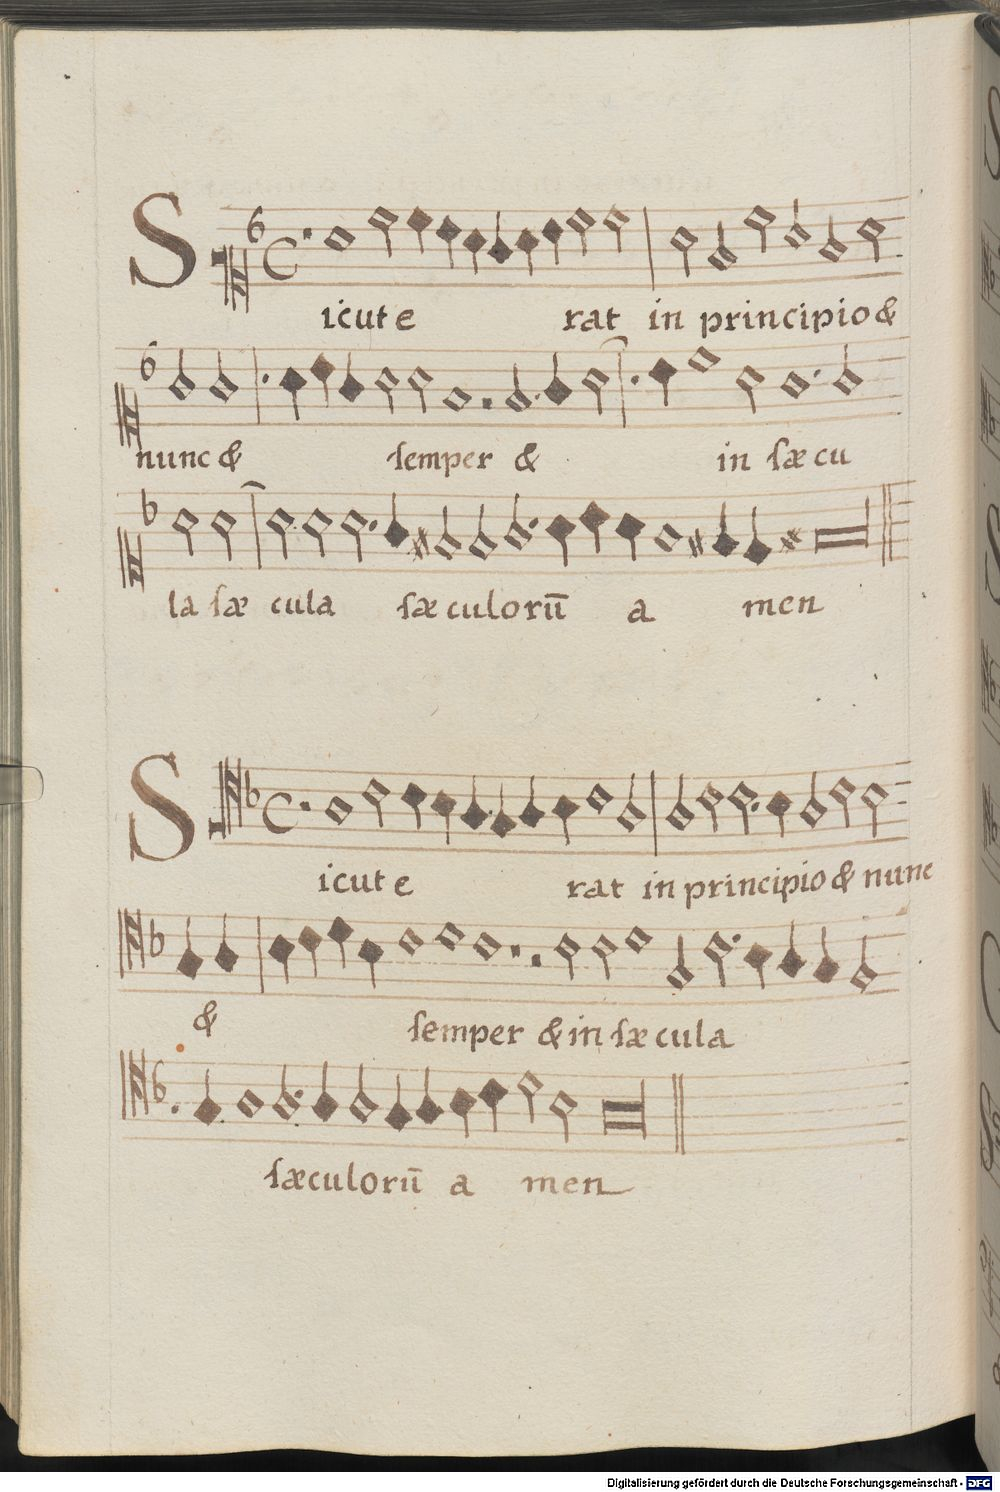 Sicut e rat in principio &
nunc & semper & in sæ cu
la sæ cula sæ culorū a men
Sicut e rat in principio & nunc
& semper & in sæ cula
sæculorū a men
Digitalisierung gefördert durch die Deutsche Forschungsgemeinschaft - DFG